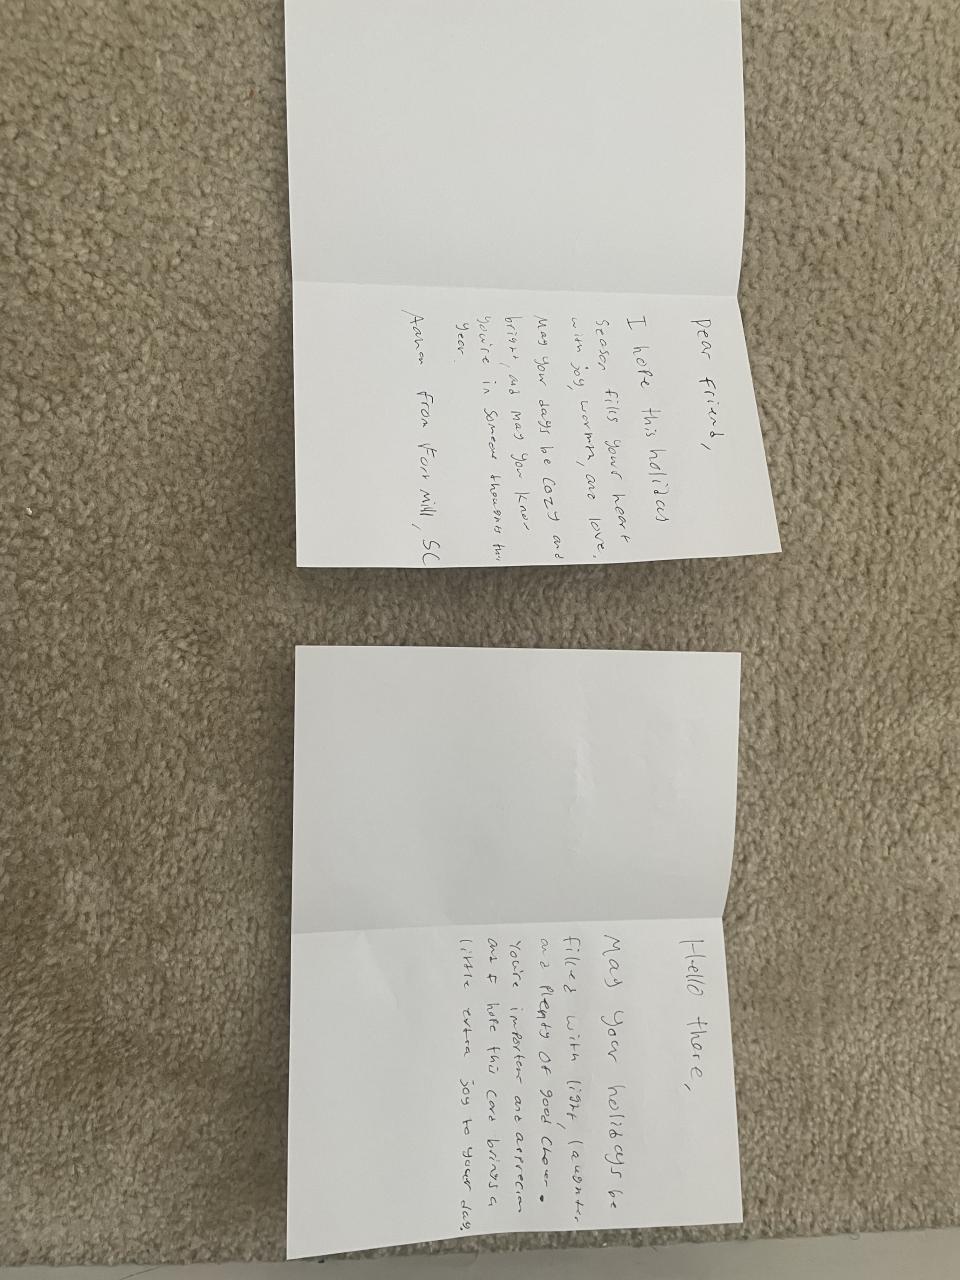 Dear friend,
I hope this holiday
season fills your heart
with joy, warmth, and love.
May your days be cozy and
bright, and may you know
you're in someone thoughts this
year.
From Fort Mill, SC
Hello there,
May your holidays be
filled with light, laughter
and plenty of good cheer.
You're important and
and I hope this card brings a
little extra joy to your day.